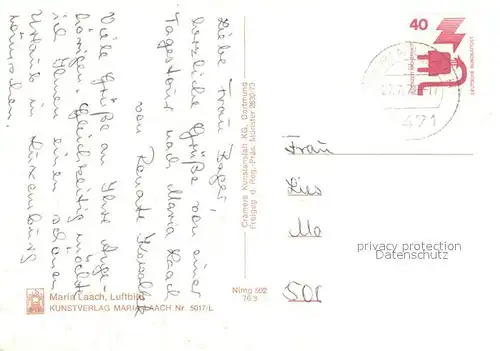 Liebe Frau Zager!
herzliche Grüße von einer
Tagestour nach Maria Laach
von Renate
Viele Grüße an Ihre Ange-
hörigen. Gleichzeitig möchte
ich Ihnen einen schönen
Urlaub in Luxemburg
wünschen.
Maria Laach, Luftbild
KUNSTVERLAG MARIA LAACH Nr. 5017/L
Cramers Kunstanstalt KG., Dortmund
Freigeg. d. Reg.-Präs. Münster 2830/70
Nimg 502
76 3
40
DEUTSCHE BUNDESPOST
471
Frau
Lies
Mo
501
privacy protection
oldthing.com